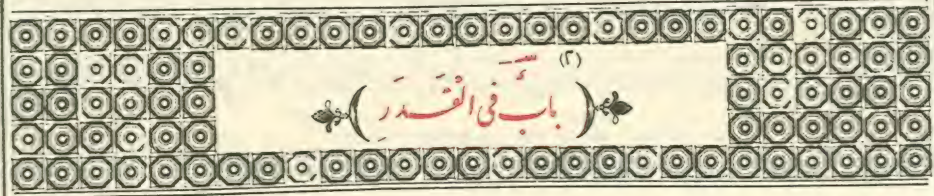 (٢)
بابٌ فِى الْقَدَرِ